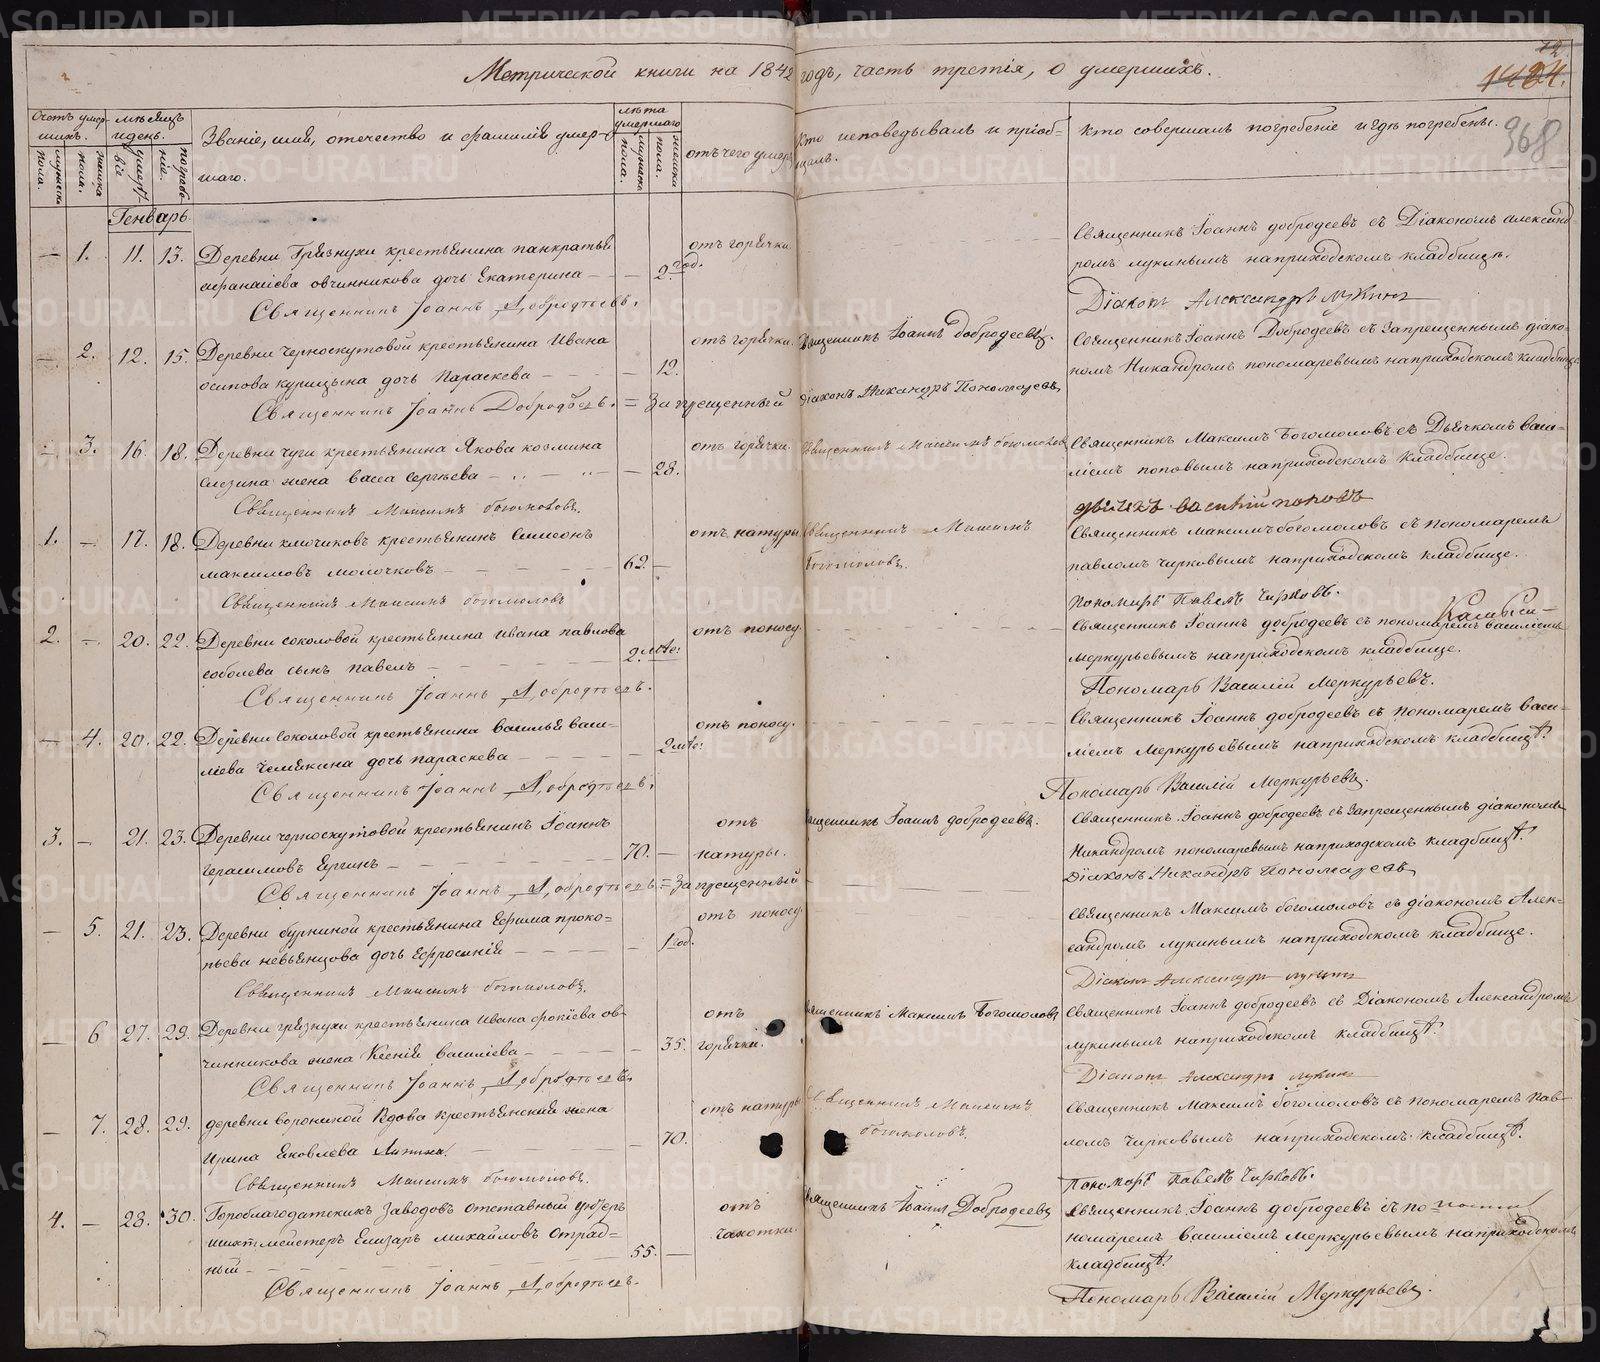 Метрической книги на 1842 годъ, часть третія, о умершихъ.
72
1424.
368
Счетъ умер-
шихъ.
мужеска
пола.
женска
пола.
мѣсяцъ
и день.
смерт.
погребе-
ніе.
Званіе, имя, отечество и фамилія умер-
шаго.
лѣта
умершаго
мужеска
пола.
женска
пола.
отъ чего умеръ
Кто исповедывалъ и пріоб-
щалъ.
Кто совершалъ погребеніе и гдѣ погребены.
Генварь.
— 1. 11. 13. Деревни Грязнухи крестьянина панкратья
афанасіева овчинникова дочь Екатерина — — 2. год. отъ горячки.
Священникъ Іоаннъ добродеевъ съ Діакономъ александ
ромъ лукинымъ наприходскомъ кладбищѣ.
Священникъ Іоаннъ Добродѣевъ.
Діаконъ Александръ Лукинъ
— 2. 12. 15. Деревни Черноскутовой крестьянина Ивана
осипова курицына дочь Параскева — — 12. отъ горячки. Священникъ Іоаннъ добродеевъ.
Священникъ Іоаннъ Добродеевъ съ Запрещеннымъ діако-
номъ Никандромъ пономаревымъ наприходскомъ кладбище
Священникъ Іоаннъ Добродѣевъ. = Запрещенный діаконъ Никандръ Пономаревъ
— 3. 16. 18. Деревни чуги крестьянина Якова козмина
жена васса сергѣева — — 28. отъ горячки. Священникъ Максимъ богомолов
Священникъ Максимъ Богомоловъ съ Дьячкомъ васи-
ліемъ поповымъ наприходскомъ кладбище.
Священникъ Максимъ богомоловъ.
дьячекъ василій поповъ
1. — 17. 18. Деревни ключиковъ крестьянинъ Симеонъ
максимовъ молочковъ — — 62. — отъ натуры Священникъ Максимъ
богомоловъ.
Священникъ максимъ богомоловъ съ пономаремъ
павломъ чирковымъ наприходскомъ кладбище.
Священникъ Максимъ богомоловъ
пономарь Павелъ Чирковъ.
2. — 20. 22. Деревни соколовой крестьянина ивана павлова
соболева сынъ павелъ — — 2. мѣс: отъ поносу.
Священникъ Іоаннъ добродеевъ съ пономаремъ василіемъ
меркурьевымъ наприходскомъ кладбище.
Священникъ Іоаннъ Добродѣевъ.
Пономарь Василій Меркурьевъ.
— 4. 20. 22. Деревни Соколовой крестьянина василья васи-
ліева Чемякина дочь параскева — — 2 мѣс: отъ поносу.
Священникъ Іоаннъ добродеевъ съ пономаремъ васи-
ліемъ меркурьевымъ наприходскомъ кладбищѣ.
Священникъ Іоаннъ Добродѣевъ.
Пономарь Василій Меркурьевъ.
3. — 21. 23. Деревни черноскутовой крестьянинъ Іоаннъ
герасимовъ Ергинъ — — 70. — отъ
натуры.
Священникъ Іоаннъ добродеевъ.
Священникъ Іоаннъ добродеевъ съ Запрещеннымъ діакономъ
Никандромъ пономаревымъ наприходскомъ кладбищѣ.
Священникъ Іоаннъ Добродѣевъ. = Запрещенный
Діаконъ Никандръ Пономаревъ
— 5. 21. 23. Деревни бурниной крестьянина Ефима проко-
пьева невьянцова дочь Ефросинія — — 1. год. отъ поносу
Священникъ Максимъ богомоловъ съ діакономъ Алек-
сандромъ лукинымъ наприходскомъ кладбище.
Священникъ Максимъ богомоловъ.
Діаконъ Александръ лукинъ
— 6 27. 29. Деревни грязнухи крестьянина ивана фокіева ов-
чинникова жена Ксенія василіева — — 35. отъ
горячки.
Священникъ Максимъ Богомоловъ
Священникъ Іоаннъ добродеевъ съ Діакономъ Александромъ
лукинымъ наприходскомъ кладбищѣ.
Священникъ Іоаннъ Добродѣевъ.
Діаконъ Александръ лукинъ
— 7. 28. 29. деревни ворониной Вдова крестьянская жена
Ирина Яковлева — — 70. отъ натуры Священникъ Максимъ
богомоловъ.
Священникъ Максимъ богомоловъ съ пономаремъ пав-
ломъ чирковымъ наприходскомъ кладбищѣ.
Священникъ Максимъ богомоловъ.
Пономарь Павелъ Чирковъ.
4. — 28. 30. Гороблагодатскихъ Заводовъ отставный унтеръ
шихтмейстеръ Елизаръ михайловъ Отрад-
ный — — 55. — отъ
чахотки.
Священникъ Іоаннъ Добродеевъ
Священникъ Іоаннъ добродеевъ съ по-
номаремъ василіемъ меркурьевымъ наприходскомъ
кладбищѣ.
Священникъ Іоаннъ Добродѣевъ.
Пономарь Василій Меркурьевъ.
METRIKI.GASO-URAL.RU